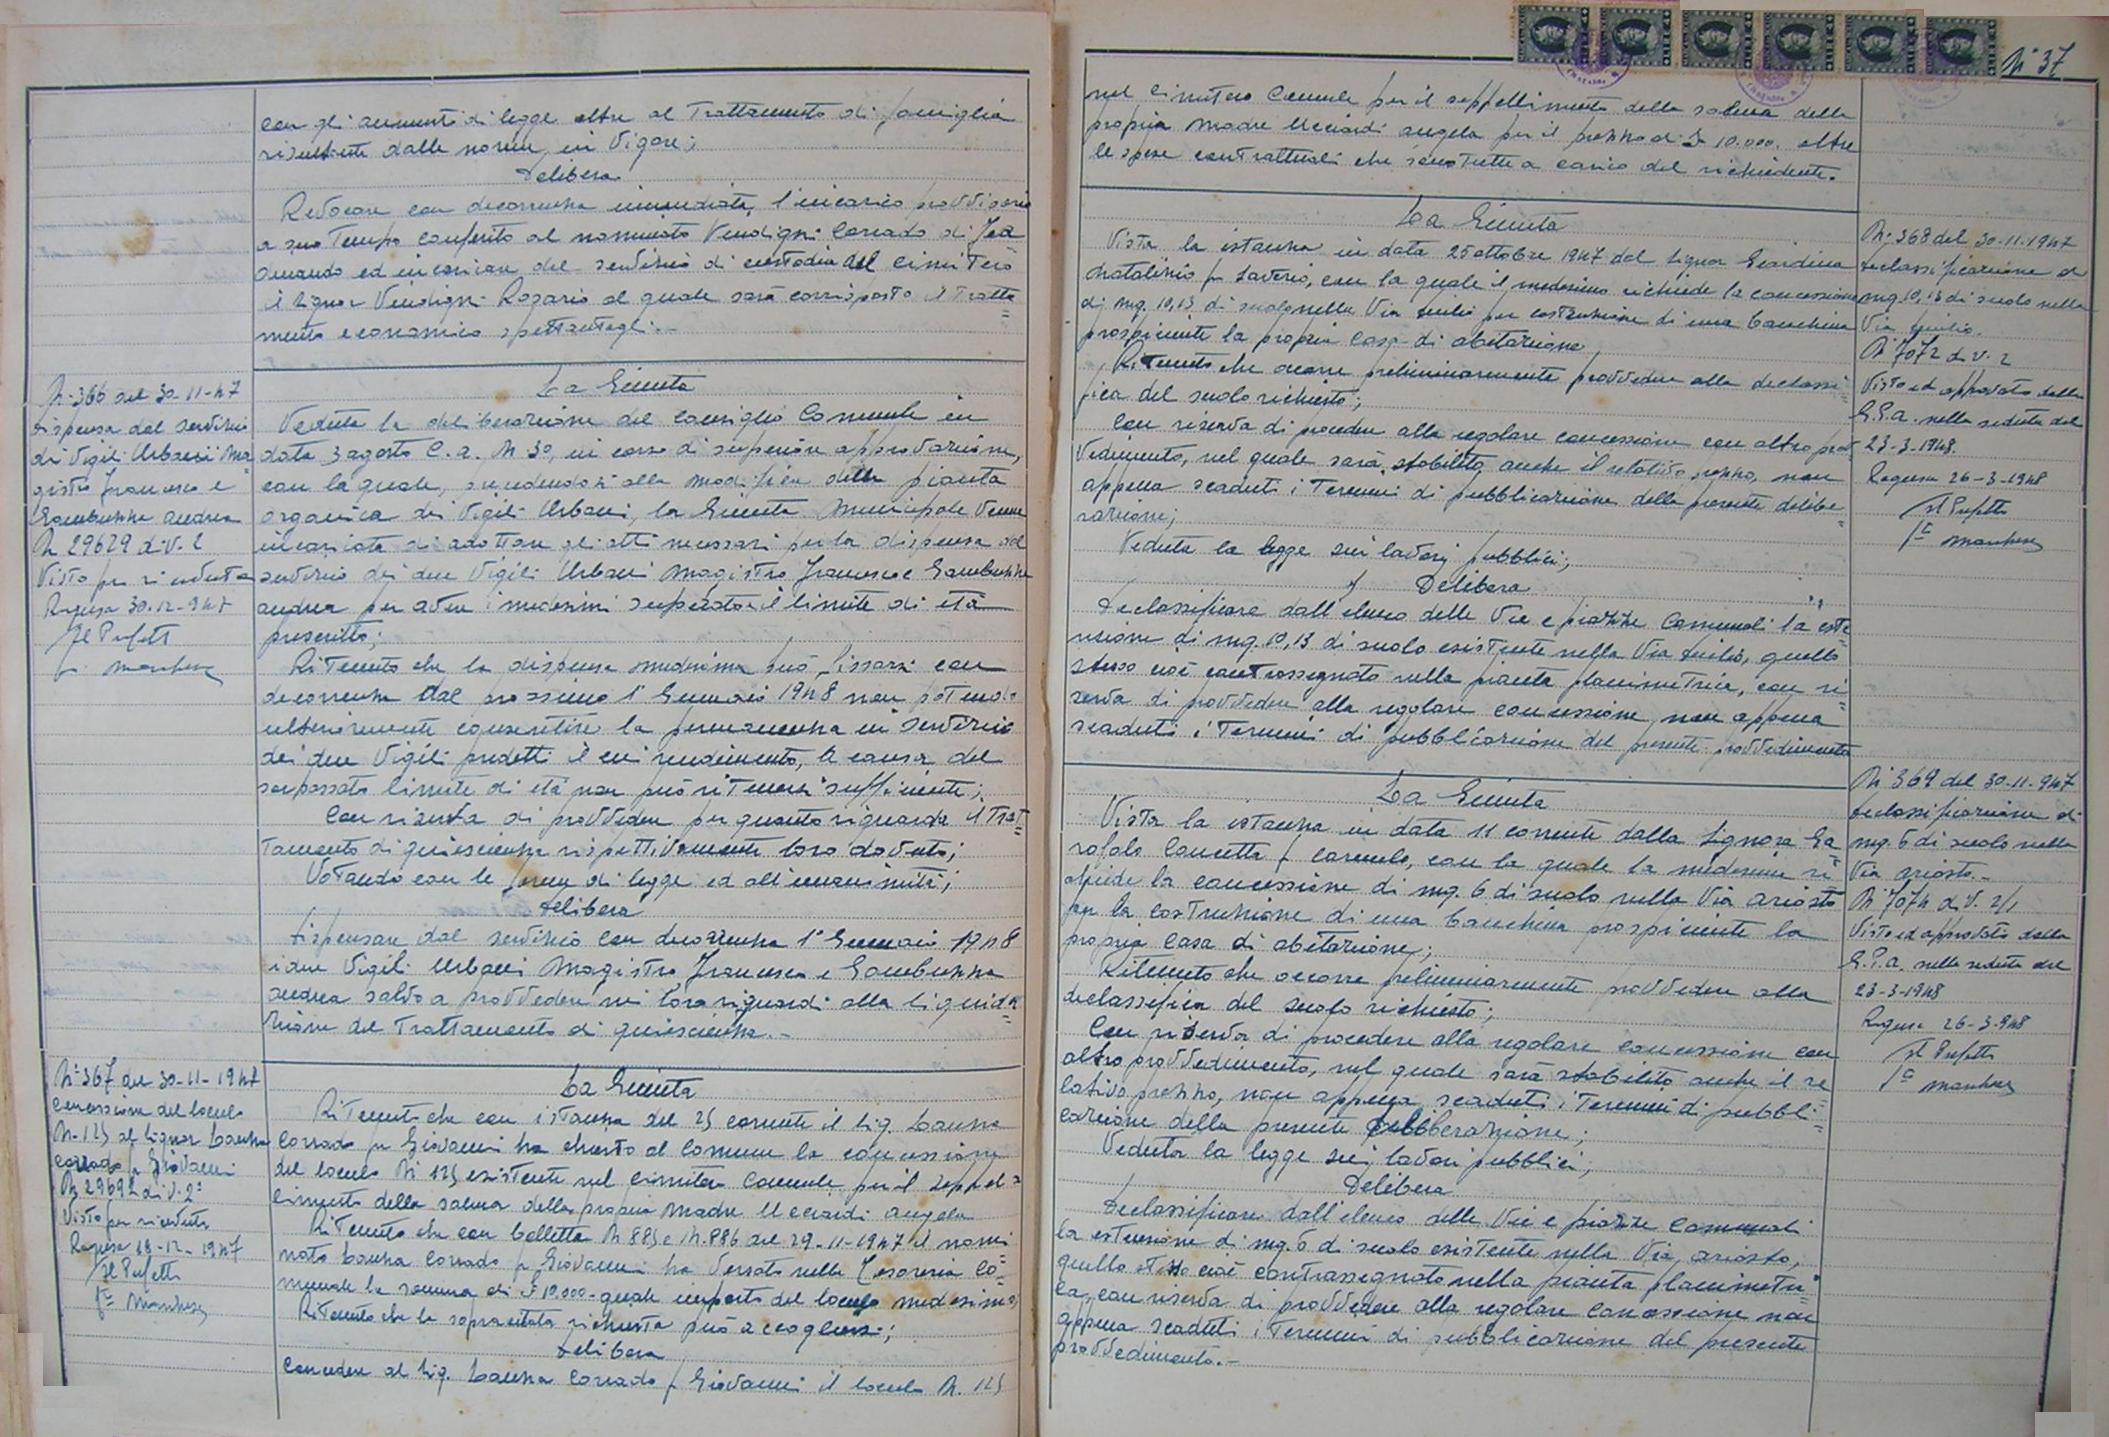 con gli aumenti di legge oltre al Trattamento di famiglia
risultante dalle norme in Vigore;
Delibera
Revocare con decorrenza immediata, l'incarico provvisorio
a suo Tempo conferito al nominato Vindigni Corrado di
ed incaricare del servizio di custodia del Cimitero
il Signor Vindigni Rosario al quale sarà corrisposto il tratta=
mento economico spettantegli.-
N. 366 del 30-11-47
Dispensa dal servizio
dei Vigili Urbani Ma=
gistro Francesco e
Gambuzza Andrea
N. 29629 div. 2
Visto per ricevuta
Ragusa 30-12-947
Il Prefetto
La Giunta
Veduta la deliberazione del Consiglio Comunale in
data 3 agosto c.a. N. 30, in corso di superiore approvazione,
con la quale, procedendosi alla modifica della pianta
organica dei Vigili Urbani, la Giunta Municipale venne
incaricata di adottare gli atti necessari per la dispensa dal
servizio dei due Vigili Urbani Magistro Francesco e Gambuzza
Andrea per aver i medesimi superato il limite di età
prescritto;
Ritenuto che la dispensa medesima può fissarsi con
decorrenza dal prossimo 1° Gennaio 1948 non potendo
ulteriormente consentire la permanenza in servizio
dei due Vigili predetti il cui rendimento, a causa del
sorpassato limite di età non può ritenersi sufficiente;
Con riserva di provvedere per quanto riguarda il Trat=
tamento di quiescienza rispettivamente loro dovuto;
Votando con le forme di legge ed all'unanimità;
Delibera
Dispensare dal servizio con decorrenza 1° Gennaio 1948
i due Vigili Urbani Magistro Francesco e Gambuzza
Andrea salvo a provvedere nei loro riguardi alla liquida=
zione del Trattamento di quiescienza.-
N. 367 del 30-11-1947
Concessione del loculo
N. 125 al Signor Lauzza
Corrado fu Giovanni
N. 29692 div. 2ª
Visto per ricevuta
Ragusa 18-12-1947
Il Prefetto
La Giunta
Ritenuto che con istanza del 25 corrente il Sig. Lauzza
Corrado fu Giovanni ha chiesto al Comune la concessione
del loculo N. 125 esistente nel cimitero Comunale per il seppel=
limento della salma della propria madre Ucciardi Angela
Ritenuto che con bolletta N. 885 e N. 886 del 29-11-1947 il nomi
nato Lauzza Corrado fu Giovanni ha versato nella Tesoreria Co=
munale la somma di £ 10.000- quale importo del loculo medesimo;
Ritenuto che la sopracitata richiesta può accogliersi;
Delibera
Concedere al Sig. Lauzza Corrado fu Giovanni il loculo N. 125
N° 37
nel Cimitero Comunale per il seppellimento della salma della
propria madre Ucciardi Angela per il prezzo di £ 10.000. oltre
le spese contrattuali che sono tutte a carico del richiedente.
La Giunta
Vista la istanza in data 25 ottobre 1947 del Signor Giardina
Natalinio fu Saverio, con la quale il medesimo richiede la concessione
di mq. 10,13 di suolo nella Via Duilio per costruzione di una banchina
prospiciente la propria casa di abitazione
Ritenuto che occorre preliminarmente provvedere alla declassi=
fica del suolo richiesto;
Con riserva di procedere alla regolare concessione con altro prov
vedimento, nel quale sarà stabilito anche il relativo prezzo, non
appena scaduti i Termini di pubblicazione della presente delibe=
razione;
Veduta la legge sui lavori pubblici;
Delibera
Declassificare dall'elenco delle Vie e piazze Comunali la este
nsione di mq. 10,13 di suolo esistente nella Via Duilio, quello
stesso cioè contrassegnato nella pianta planimetrica, con ri=
serva di provvedere alla regolare concessione non appena
scaduti i Termini di pubblicazione del presente provvedimento
N° 368 del 30-11-1947
Declassificazione di
mq. 10,13 di suolo nella
Via Duilio.
N. 7072 div. 2
Visto ed approvato dalla
G.P.A. nella seduta del
23-3-1948.
Ragusa 26-3-1948
Il Prefetto
La Giunta
Vista la istanza in data 11 corrente dalla Signora Ga
rofalo Concetta fu Carmelo, con la quale la medesima ri=
chiede la concessione di mq. 6 di suolo nella Via Ariosto
per la costruzione di una banchina prospiciente la
propria casa di abitazione;
Ritenuto che occorre preliminarmente provvedere alla
declassifica del suolo richiesto;
Con riserva di procedere alla regolare concessione con
altro provvedimento, nel quale sarà stabilito anche il re=
lativo prezzo, non appena scaduti i Termini di pubbli=
cazione della presente deliberazione;
Veduta la legge sui lavori pubblici;
Delibera
Declassificare dall'elenco delle Vie e piazze Comunali
la estensione di mq. 6 di suolo esistente nella Via Ariosto,
quello stesso cioè contrassegnato nella pianta planimetri=
ca, con riserva di provvedere alla regolare concessione non
appena scaduti i Termini di pubblicazione del presente
provvedimento.-
N° 369 del 30-11-947
Declassificazione di
mq. 6 di suolo nella
Via Ariosto.-
N. 7074 div. 2/1
Visto ed approvato dalla
G.P.A. nella seduta del
23-3-1948
Ragusa 26-3-948
Il Prefetto